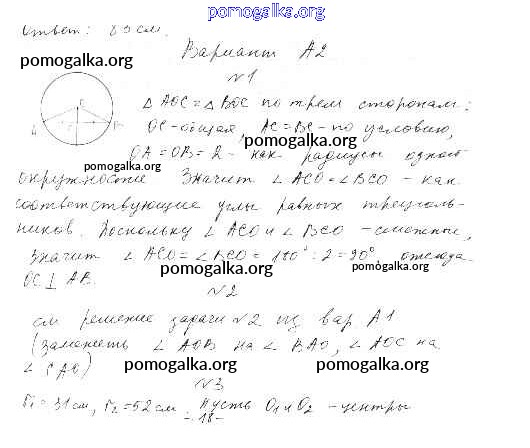 pomogalka.org
Ответ: 83 см.
Вариант А2
pomogalka.org
№1
△ AOC = △ BOC по трем сторонам:
OC - общая, AC = BC - по условию,
pomogalka.org
OA = OB = R - как радиусы одной
pomogalka.org
окружности. Значит ∠ ACO = ∠ BCO - как
соответствующие углы равных треуголь-
ников. Поскольку ∠ ACO и ∠ BCO - смежные,
pomogalka.org
значит ∠ ACO = ∠ BCO = 180° : 2 = 90°, отсюда
pomogalka.org
OC ⊥ AB.
№2
см решение задачи №2 из вар. А1
(заменить ∠ AOB на ∠ BAO, ∠ AOC на
∠ CAO)
pomogalka.org pomogalka.org
№3
r₁ = 31 см, r₂ = 52 см. Пусть O₁ и O₂ - центры
- 18 -
pomogalka.org